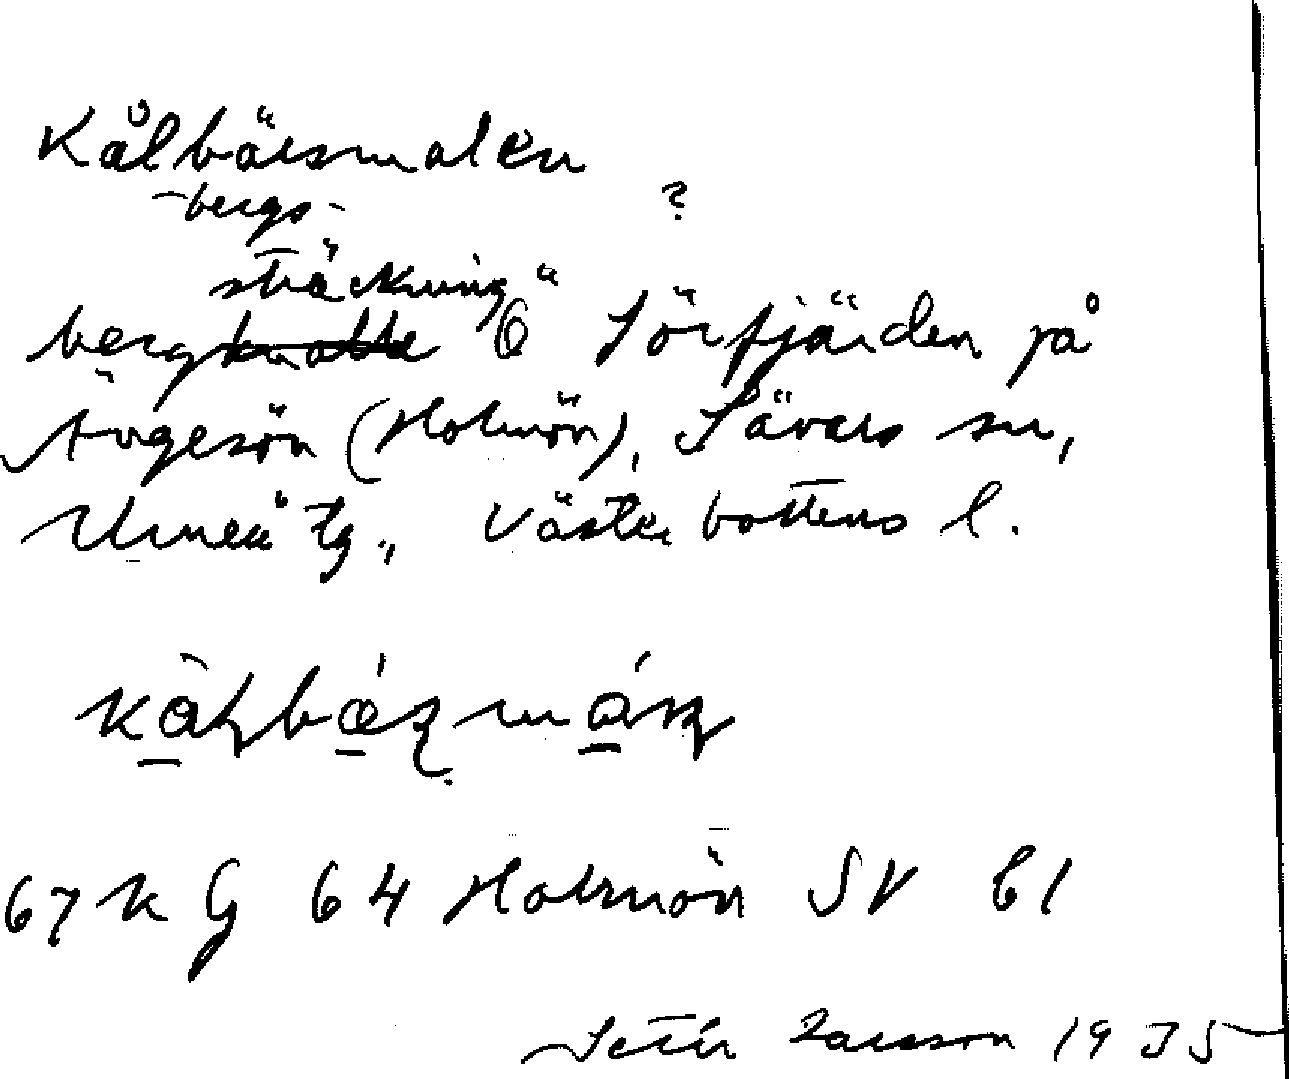 Kålbärsmalen
-bergs- ?
sträckning
bergknalle Ö Sörfjärden på
Ängesön (Holmön), Sävars sn,
Umeå tg., Västerbottens l.
67 K G 64 Holmön SV b1
Setér Larsson 1935